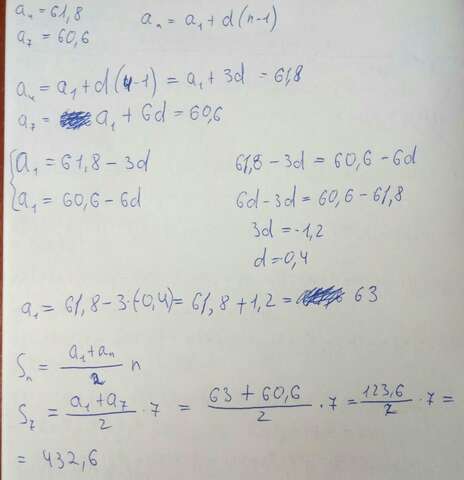 aₙ = 61,8
a₇ = 60,6
aₙ = a₁ + d(n-1)
a₄ = a₁ + d(4-1) = a₁ + 3d = 61,8
a₇ = a₁ + 6d = 60,6
{ a₁ = 61,8 - 3d
a₁ = 60,6 - 6d
61,8 - 3d = 60,6 - 6d
6d - 3d = 60,6 - 61,8
3d = -1,2
d = 0,4
a₁ = 61,8 - 3·(-0,4) = 61,8 + 1,2 = 63
Sₙ = (a₁ + aₙ)/2 n
S₇ = (a₁ + a₇)/2 · 7 = (63 + 60,6)/2 · 7 = 123,6/2 · 7 =
= 432,6